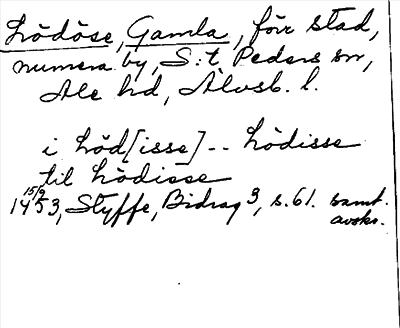 Lödöse, Gamla, förr stad,
numera by, S:t Peders sn,
Ale hd, Älvsb. l.
i Löd[isse] -- Lödisse
til Lödisse
15/9
1453, Styffe, Bidrag 3, s. 61. samt.
avskr.